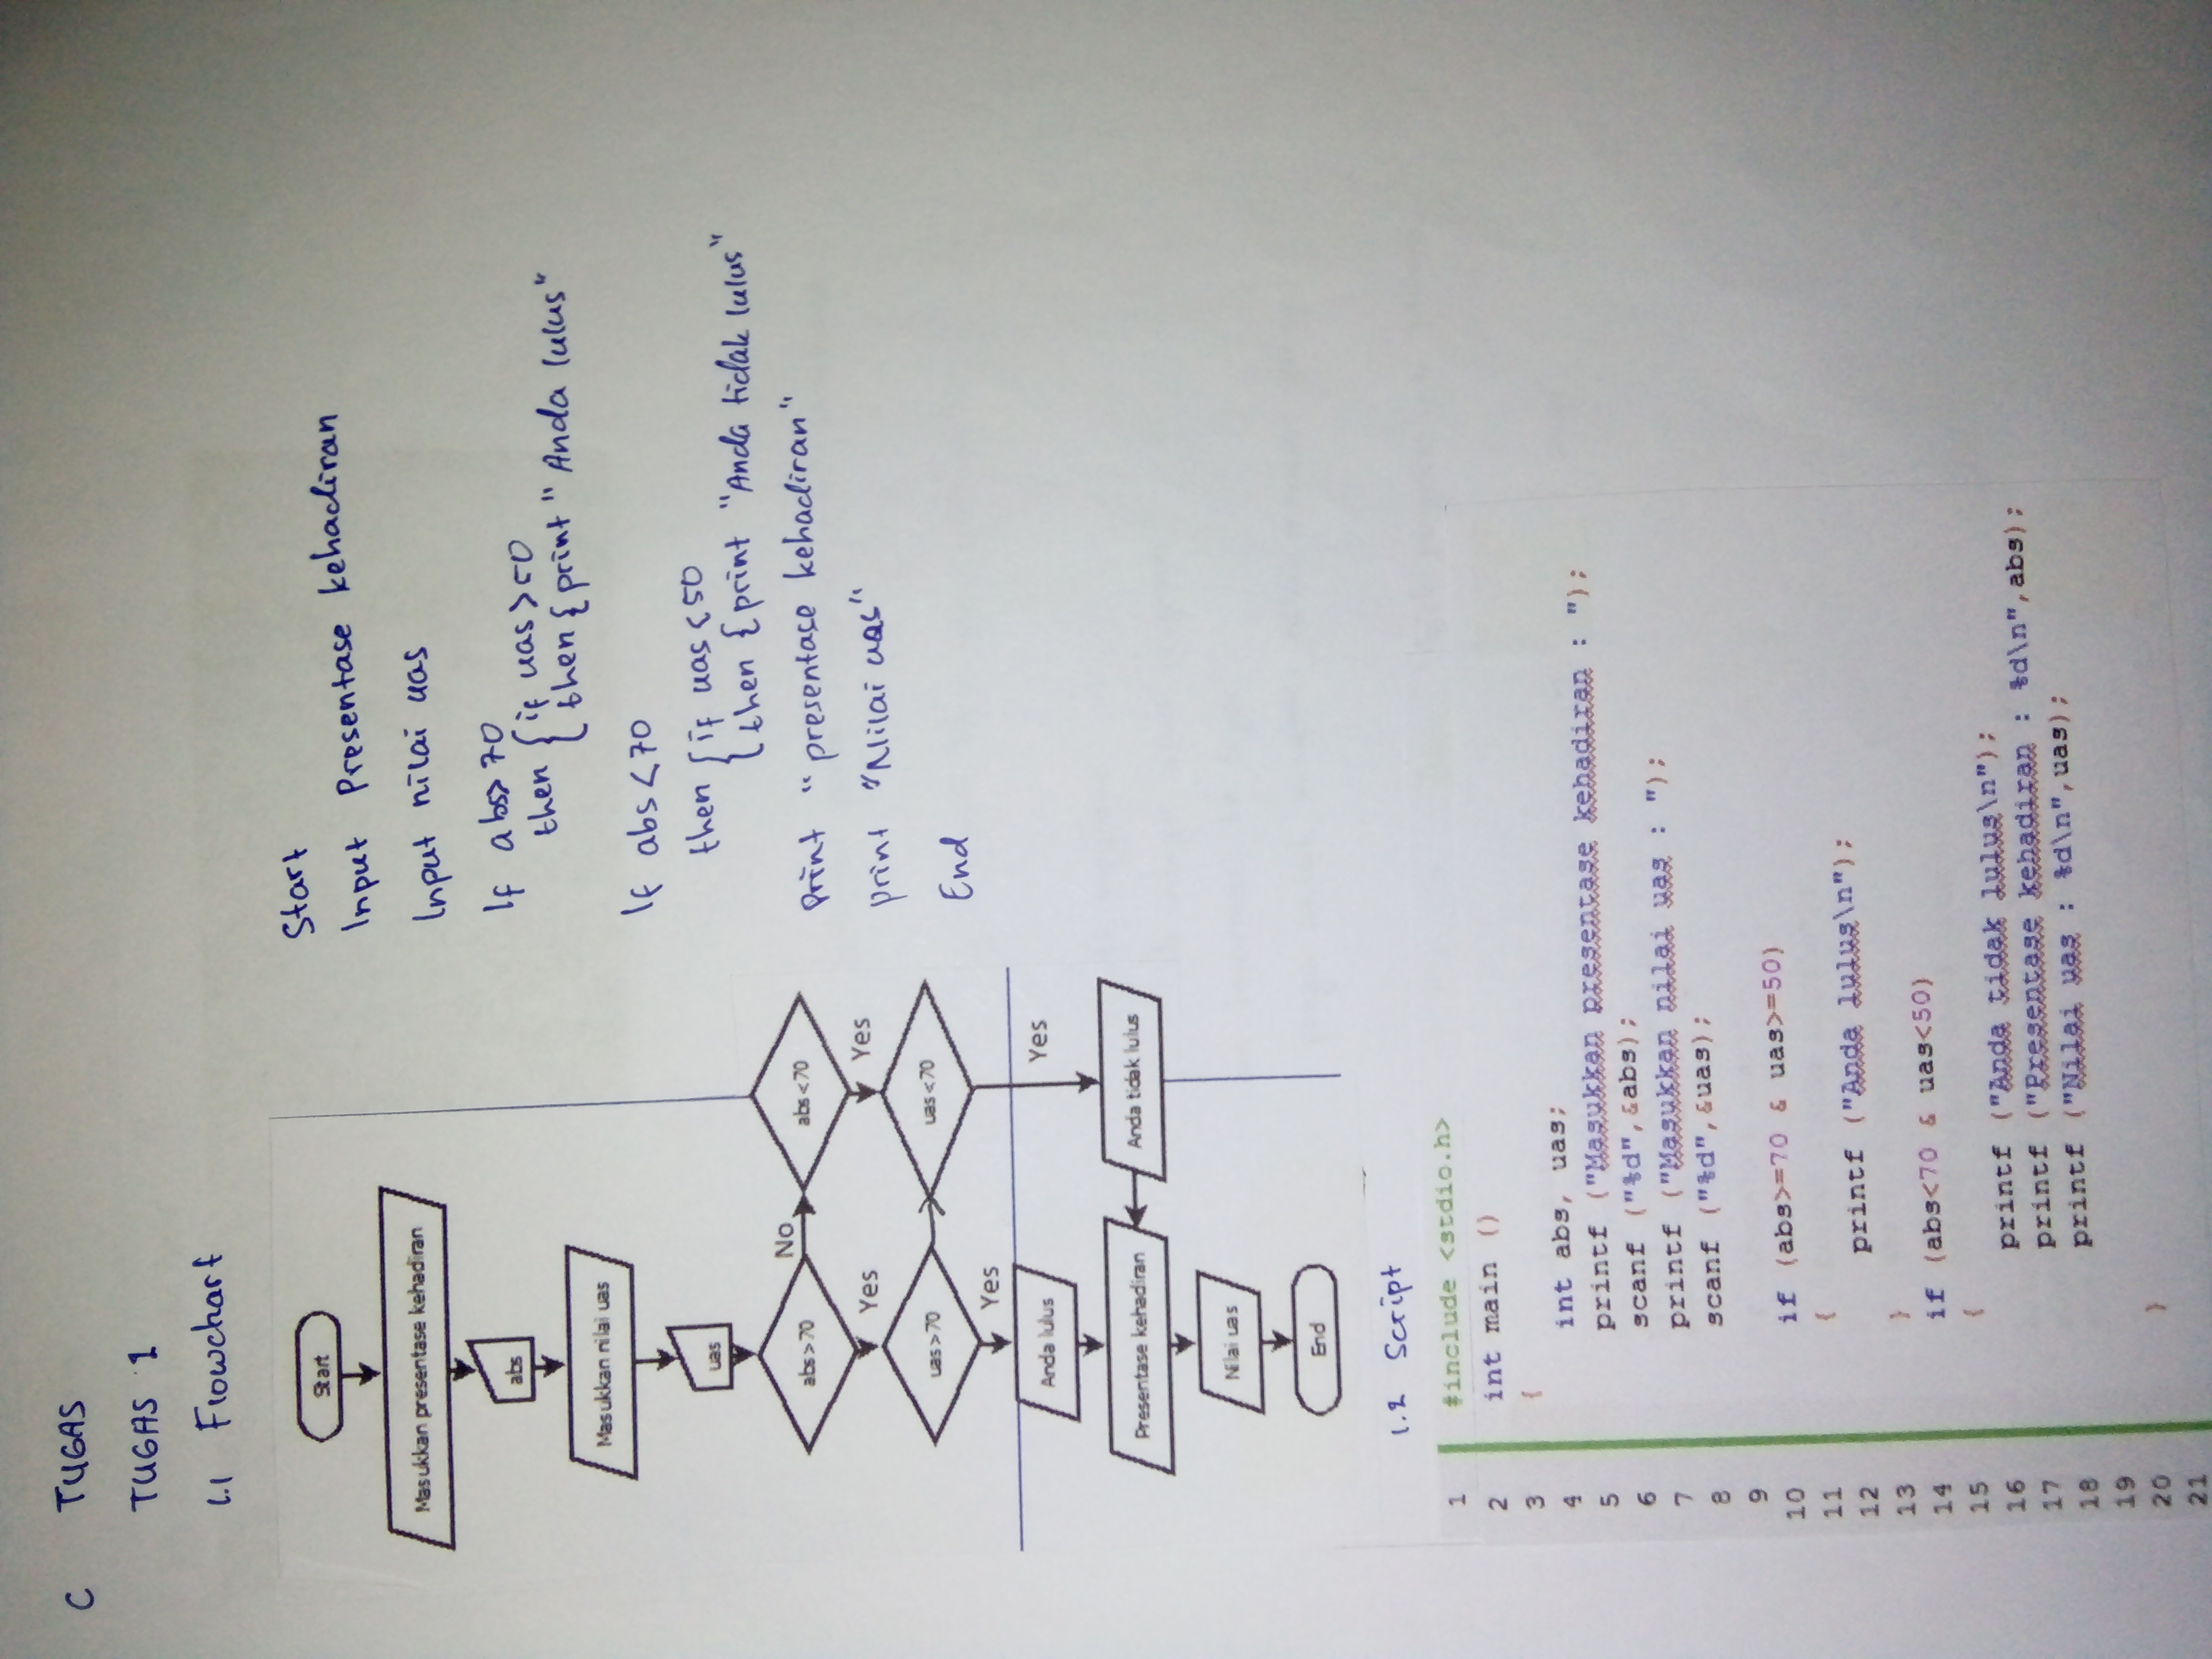 C TUGAS
TUGAS 1
1.1 Flowchart
Start
Masukkan presentase kehadiran
abs
Masukkan nilai uas
uas
abs > 70
No
abs < 70
Yes
Yes
uas > 70
uas < 70
Yes
Yes
Anda lulus
Anda tidak lulus
Presentase kehadiran
Nilai uas
End
Start
Input Presentase kehadiran
Input nilai uas
If abs > 70
then { if uas > 50
then { print " Anda lulus"
If abs < 70
then { if uas < 50
then { print "Anda tidak lulus"
print "presentase kehadiran"
print "Nilai uas"
End
1.2 Script
1 #include <stdio.h>
2 int main ()
3 {
4 int abs, uas;
5 printf ("Masukkan presentase kehadiran : ");
6 scanf ("%d",&abs);
7 printf ("Masukkan nilai uas : ");
8 scanf ("%d",&uas);
9
10 if (abs>=70 & uas>=50)
11 {
12 printf ("Anda lulus\n");
13 }
14 if (abs<70 & uas<50)
15 {
16 printf ("Anda tidak lulus\n");
17 printf ("Presentase kehadiran : %d\n",abs);
18 printf ("Nilai uas : %d\n",uas);
19
20 }
21